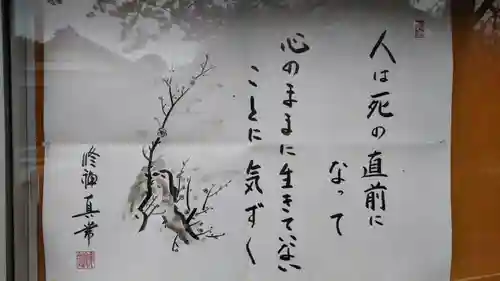 人は死の直前に
なって
心のままに生きていない
ことに気ずく
修禅真常